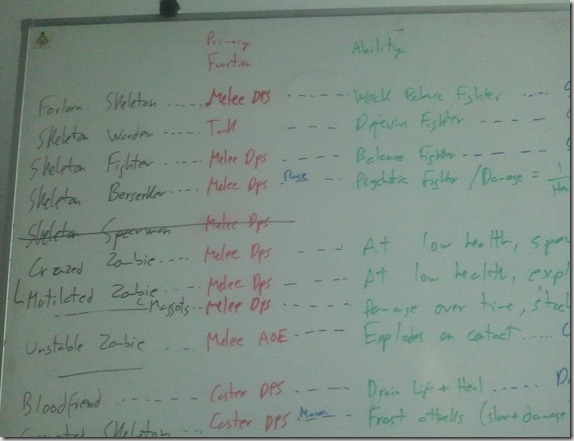 Primary Function Ability
Forlorn Skeleton ..... Melee DPS ----- Weak Balance Fighter
Skeleton Warden --- Tank --- Defensive Fighter
Skeleton Fighter ---- Melee Dps ---- Balance Fighter
Skeleton Berserker --- Melee Dps Rage --- Psychotic Fighter / Damage = 1
Skeleton Spearman Melee Dps
Crazed Zombie ... Melee Dps ---- At low health,
Mutilated Zombie ... Melee Dps ---- At low health,
Maggots -- Melee Dps ---- Damage over time,
Unstable Zombie Melee AOE ---- Explodes on contact .....
Bloodfiend ------ Caster DPS ---- Drain Life + Heal .....
Skeleton Caster DPS Mana --- Frost attacks (slow + damage